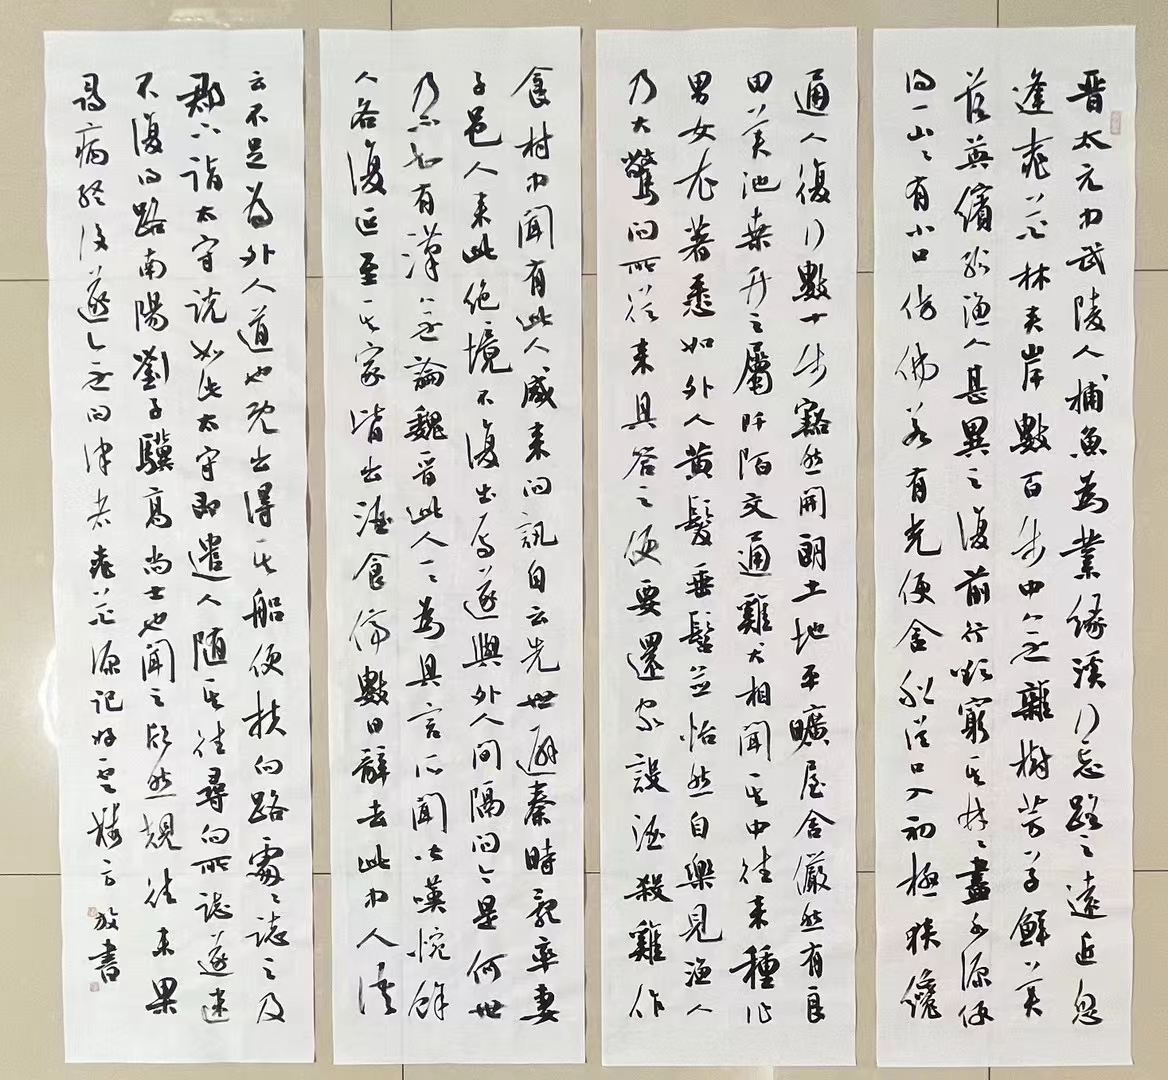 晉太元中武陵人捕魚為業緣溪行忘路之遠近忽
逢桃花林夾岸數百步中無雜樹芳草鮮美
落英繽紛漁人甚異之復前行欲窮其林々盡水源便
得一山々有小口仿佛若有光便舍船從口入初極狹纔
通人復行數十步豁然開朗土地平曠屋舍儼然有良
田美池桑竹之屬阡陌交通雞犬相聞其中往來種作
男女衣著悉如外人黃髮垂髫並怡然自樂見漁人
乃大驚問所從來具答之便要還家設酒殺雞作
食村中聞有此人咸來問訊自云先世避秦時亂率妻
子邑人來此絕境不復出焉遂與外人間隔問今是何世
乃不知有漢無論魏晉此人一一為具言所聞皆嘆惋餘
人各復延至其家皆出酒食停數日辭去此中人語
云不足為外人道也既出得其船便扶向路處々誌之及
郡下詣太守說如此太守即遣人隨其往尋向所誌遂迷
不復得路南陽劉子驥高尚士也聞之欣然規往未果
尋病終後遂無問津者桃花源記 放書